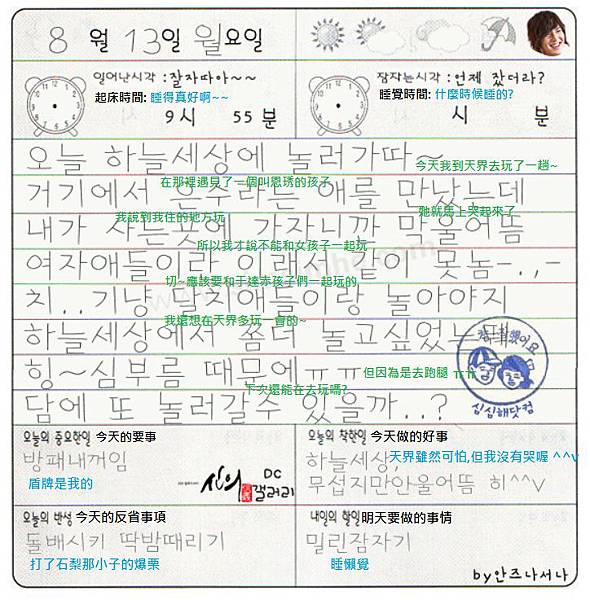 8 월 13일 월요일
일어난시각 :잘자따아~~
잠자는시각 :언제 잤더라?
起床時間: 睡得真好啊~~
睡覺時間: 什麼時候睡的?
9 시 55 분
시 분
오늘 하늘세상에 놀러가따~
今天我到天界去玩了一趟~
在那裡遇見了一個叫恩琇的孩子
거기에서 은수라는 애를 만났는데
我說到我住的地方玩
她就馬上哭起來了
내가 사는곳에 가자니까 막울어뜸
所以我才說不能和女孩子一起玩
여자애들이랑 이래서 같이 못놈-.,-
切~應該要和于達赤孩子們一起玩的
치..기냥 달치애들이랑 놀아야지
我還想在天界多玩一會的~
하늘세상에서 쫌더 놀고싶었는데
힝~심부름 때문에ㅠㅠ
但因為是去跑腿 ㅠㅠ
下次還能在去玩嗎?
담에 또 놀러갈수 있을까..?
참 잘했어요
심심해닷컴
오늘의 중요한일 今天的要事
방패내꺼임
盾牌是我的
신의
DC
갤러리
오늘의 착한일 今天做的好事
하늘세상,
天界雖然可怕,但我沒有哭喔 ^^v
무섭지만안울어뜸 히^^v
오늘의 반성 今天的反省事項
돌배시키 딱밤때리기
打了石梨那小子的爆栗
내일의 할일明天要做的事情
밀린잠자기
睡懶覺
by안즈나서나